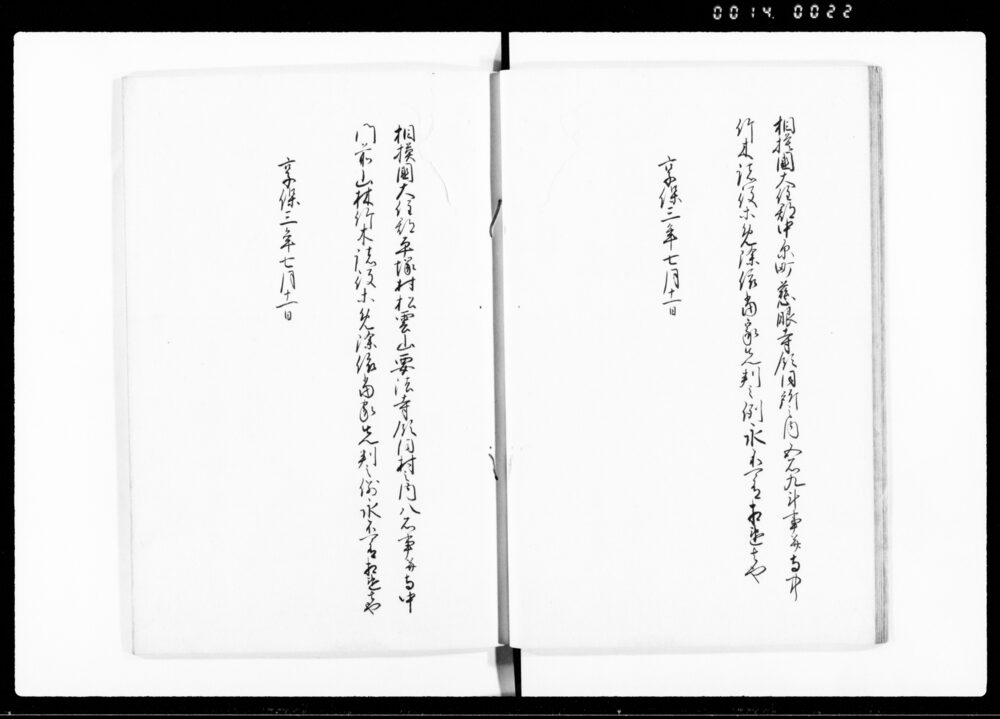 0014 0022
相模國大住郡中原町慈眼寺領同所之内五石九斗事并寺中
竹木諸役等免除依當家先判之例永不可有相違者也
享保三年七月十一日
相模國大住郡平塚村松雲山要法寺領同村之内八石事并寺中
門前山林竹木諸役等免除依當家先判之例永不可有相違者也
享保三年七月十一日